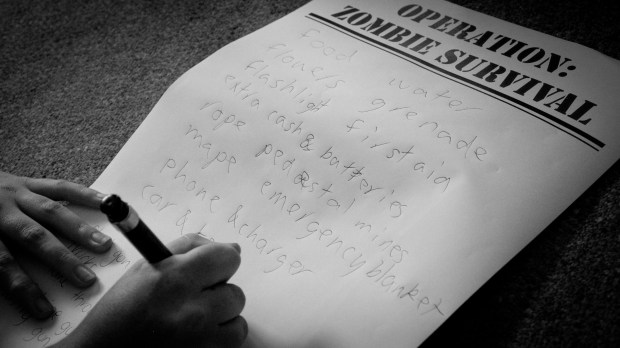 OPERATION:
ZOMBIE SURVIVAL
food water
flowers grenade
flashligt first aid
extra cash & batteries
rope pedestal mines
mape emergency blanket
phone & charger
car &